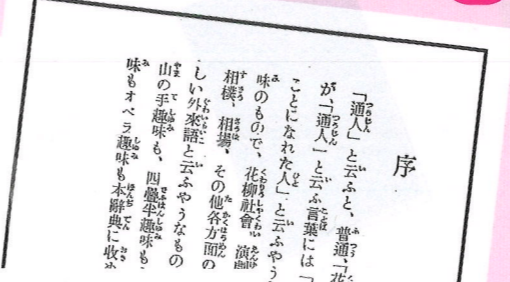 序
「通人」と云ふと、普通、「花
が、「通人」と云ふ言葉には「
ことになれた人」と云ふやう
味のもので、花柳社會、演劇
相樸、相場、その他各方面の
しい外來語と云ふやうなもの
山の手趣味も、四疊半趣味も
味もオペラ趣味も本辭典に收め